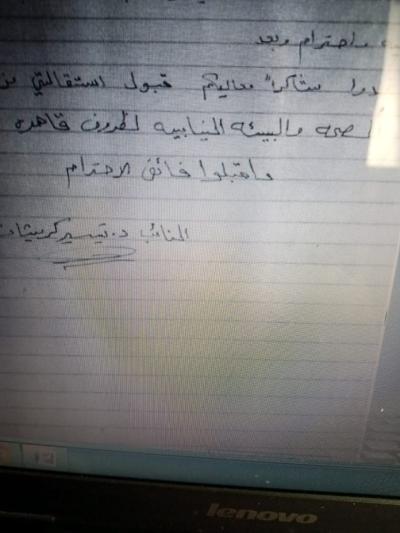 واحترام وبعد
شاكراً معاليكم قبول استقالتي من
الصحه والبيئه النيابيه لظروف قاهره
واقبلوا فائق الاحترام
النائب د. تيسير كريشان
lenovo